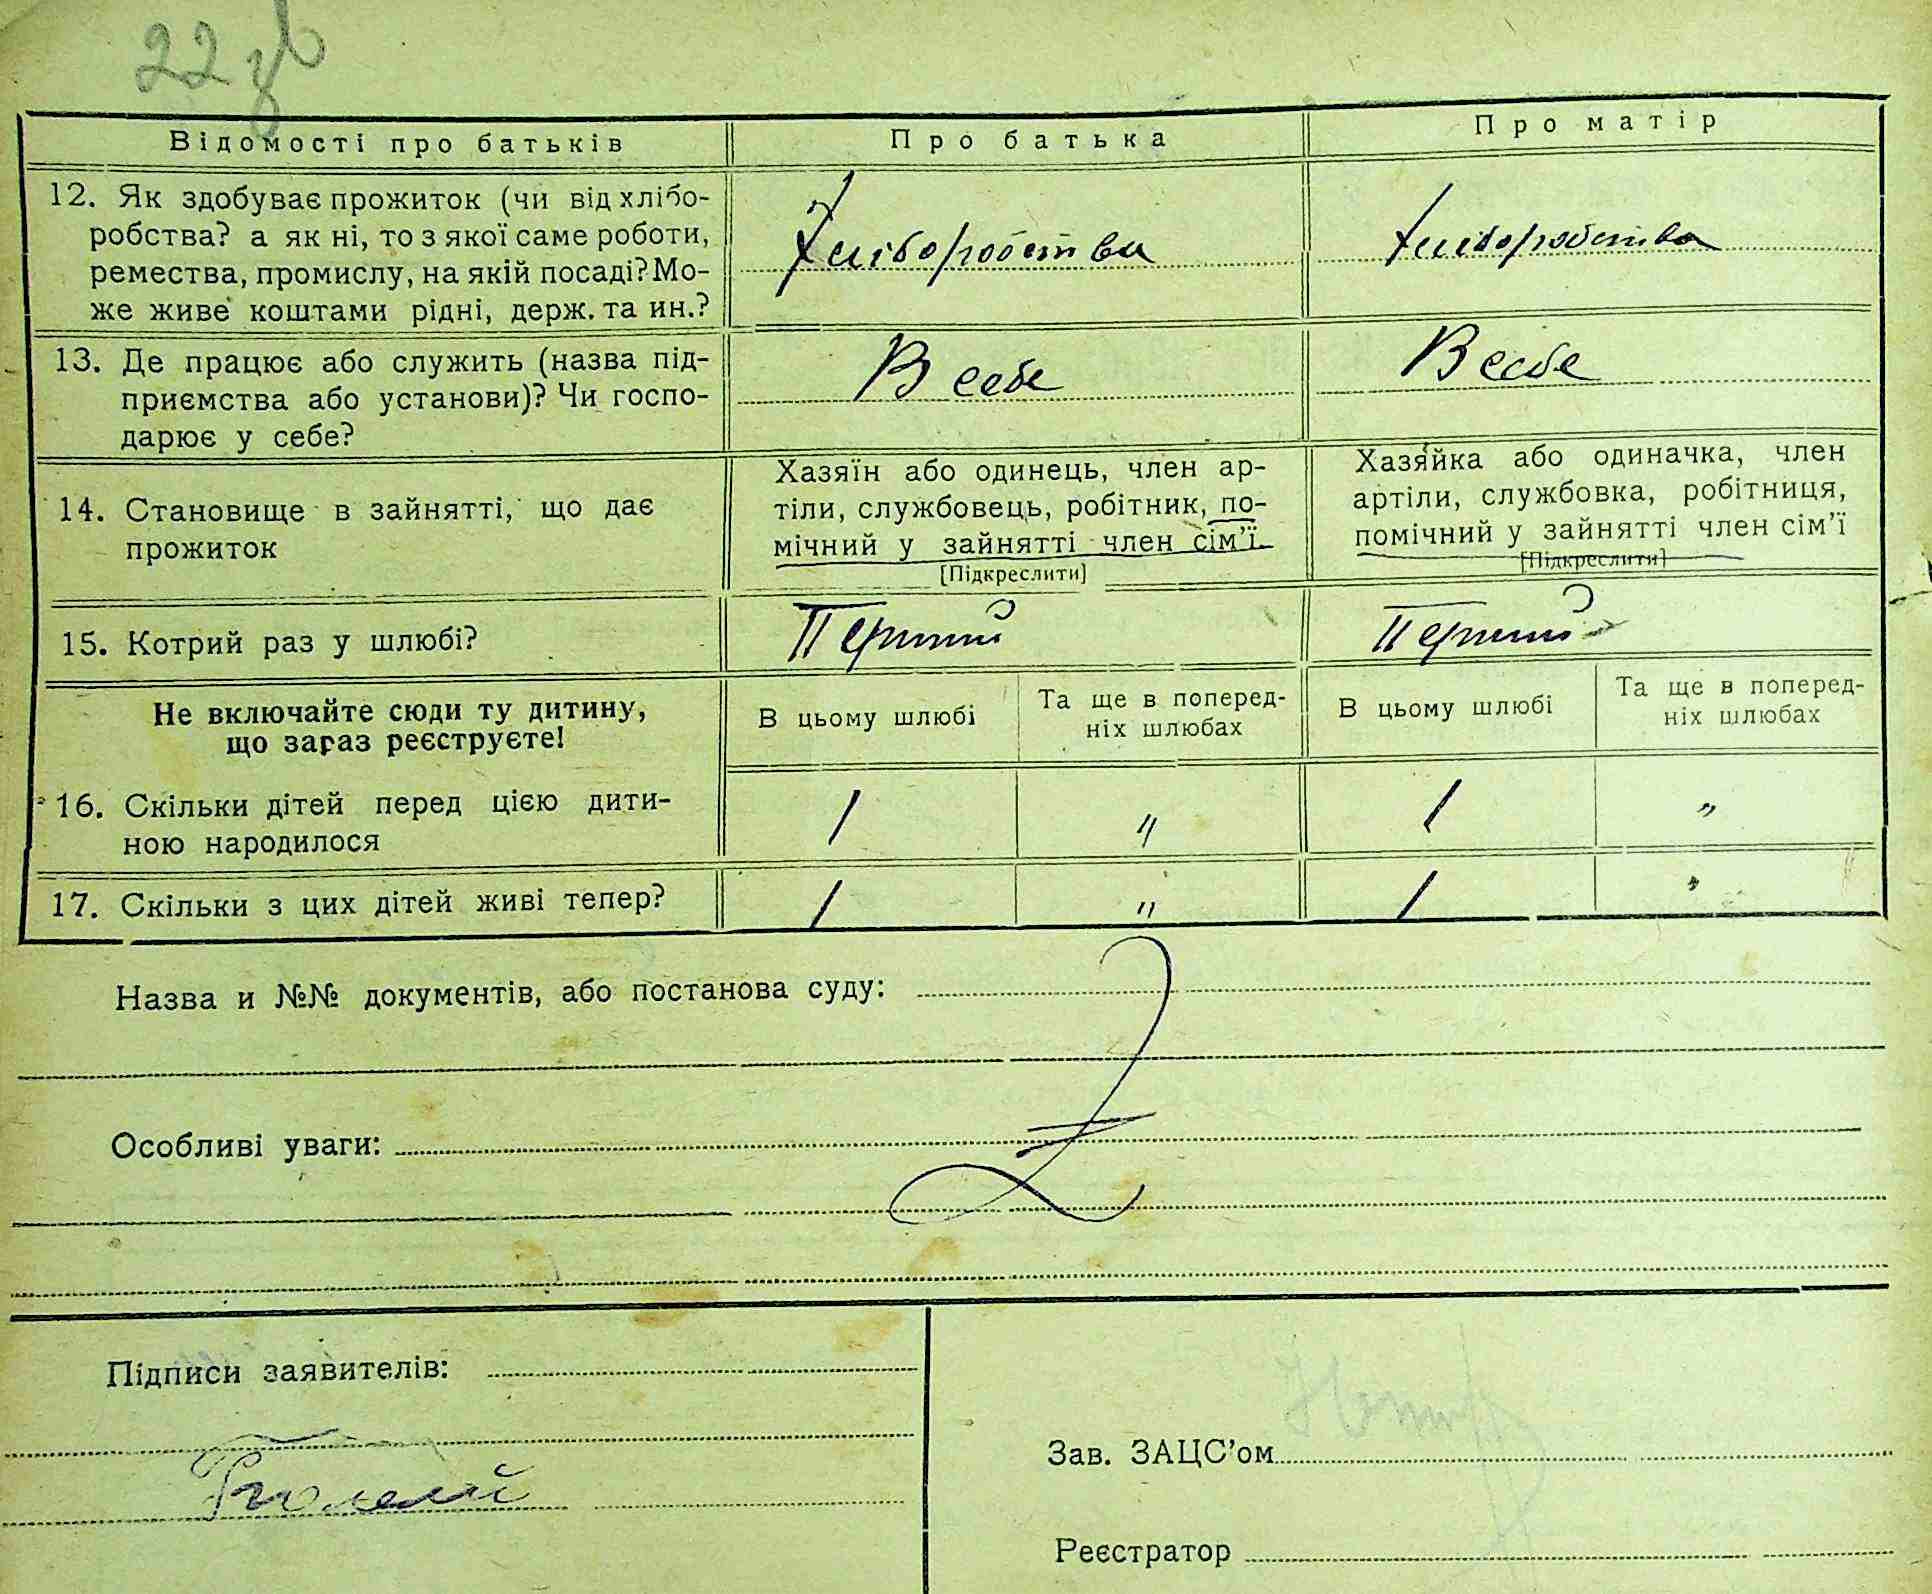 22 зв
Відомості про батьків Про батька Про матір
12. Як здобуває прожиток (чи від хлібо-
робства? а як ні, то з якої саме роботи,
ремества, промислу, на якій посаді? Мо-
же живе коштами рідні, держ. та ин.?
Хліборобства Хліборобства
13. Де працює або служить (назва під-
приємства або установи)? Чи госпо-
дарює у себе?
В себе В себе
14. Становище в зайнятті, що дає
прожиток
Хазяїн або одинець, член ар-
тіли, службовець, робітник, по-
мічний у зайнятті член сім’ї.
[Підкреслити]
Хазяйка або одиначка, член
артіли, службовка, робітниця,
помічний у зайнятті член сім’ї
[Підкреслити]
15. Котрий раз у шлюбі? Перший Перший
Не включайте сюди ту дитину,
що зараз реєструєте!
В цьому шлюбі
Та ще в поперед-
ніх шлюбах
В цьому шлюбі
Та ще в поперед-
ніх шлюбах
16. Скільки дітей перед цією дити-
ною народилося
1 " 1 "
17. Скільки з цих дітей живі тепер? 1 " 1 "
Назва и №№ документів, або постанова суду:
Особливі уваги:
Підписи заявителів:
Зав. ЗАЦС’ом
Реєстратор